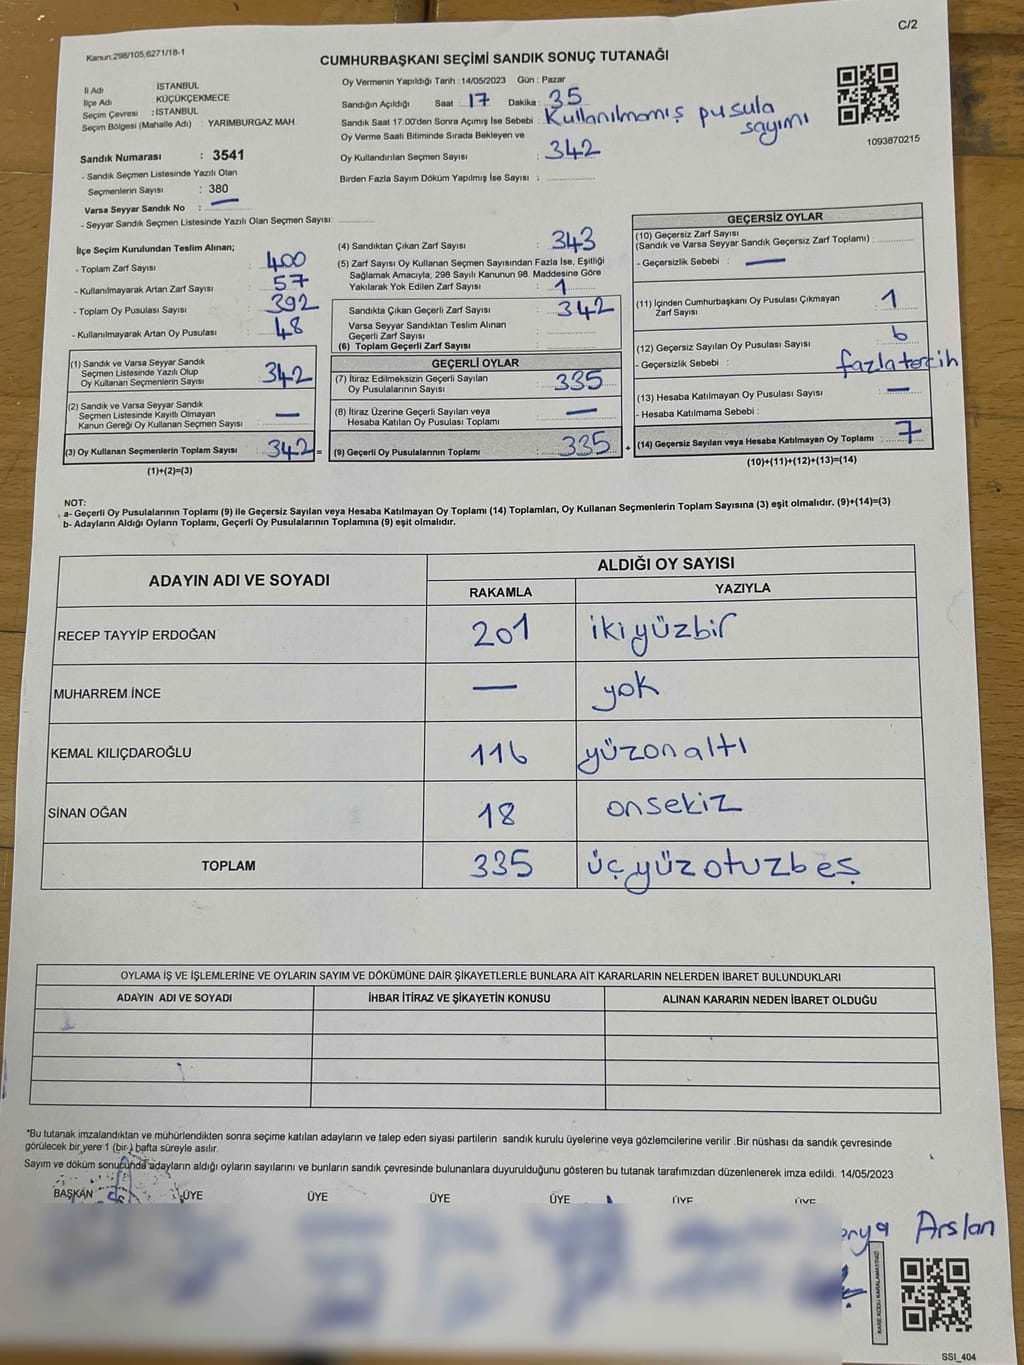 C/2
Kanun;298/105;6271/18-1
CUMHURBAŞKANI SEÇİMİ SANDIK SONUÇ TUTANAĞI
İl Adı : İSTANBUL
İlçe Adı : KÜÇÜKÇEKMECE
Seçim Çevresi : İSTANBUL
Seçim Bölgesi (Mahalle Adı) : YARIMBURGAZ MAH.
Sandık Numarası : 3541
- Sandık Seçmen Listesinde Yazılı Olan
Seçmenlerin Sayısı : 380
Varsa Seyyar Sandık No : —
- Seyyar Sandık Seçmen Listesinde Yazılı Olan Seçmen Sayısı:
Oy Vermenin Yapıldığı Tarih : 14/05/2023 Gün : Pazar
Sandığın Açıldığı Saat : 17 Dakika : 35
Sandık Saat 17.00'den Sonra Açımış İse Sebebi : Kullanılmamış pusula
sayımı
Oy Verme Saati Bitiminde Sırada Bekleyen ve
Oy Kullandırılan Seçmen Sayısı : 342
Birden Fazla Sayım Döküm Yapılmış İse Sayısı :
1093870215
İlçe Seçim Kurulundan Teslim Alınan;
- Toplam Zarf Sayısı : 400
- Kullanılmayarak Artan Zarf Sayısı : 57
- Toplam Oy Pusulası Sayısı : 392
- Kullanılmayarak Artan Oy Pusulası : 48
(1) Sandık ve Varsa Seyyar Sandık
Seçmen Listesinde Yazılı Olup
Oy Kullanan Seçmenlerin Sayısı : 342
(2) Sandık ve Varsa Seyyar Sandık
Seçmen Listesinde Kayıtlı Olmayan
Kanun Gereği Oy Kullanan Seçmen Sayısı : —
(3) Oy Kullanan Seçmenlerin Toplam Sayısı : 342 =
(1)+(2)=(3)
(4) Sandıktan Çıkan Zarf Sayısı : 343
(5) Zarf Sayısı Oy Kullanan Seçmen Sayısından Fazla İse, Eşitliği
Sağlamak Amacıyla; 298 Sayılı Kanunun 98. Maddesine Göre
Yakılarak Yok Edilen Zarf Sayısı : 1
Sandıkta Çıkan Geçerli Zarf Sayısı : 342
Varsa Seyyar Sandıktan Teslim Alınan
Geçerli Zarf Sayısı :
(6) Toplam Geçerli Zarf Sayısı :
GEÇERLİ OYLAR
(7) İtiraz Edilmeksizin Geçerli Sayılan
Oy Pusulalarının Sayısı : 335
(8) İtiraz Üzerine Geçerli Sayılan veya
Hesaba Katılan Oy Pusulası Toplamı : —
(9) Geçerli Oy Pusulalarının Toplamı : 335 +
GEÇERSİZ OYLAR
(10) Geçersiz Zarf Sayısı
(Sandık ve Varsa Seyyar Sandık Geçersiz Zarf Toplamı) :
- Geçersizlik Sebebi : —
(11) İçinden Cumhurbaşkanı Oy Pusulası Çıkmayan
Zarf Sayısı : 1
(12) Geçersiz Sayılan Oy Pusulası Sayısı : 6
- Geçersizlik Sebebi : fazla tercih
(13) Hesaba Katılmayan Oy Pusulası Sayısı : —
- Hesaba Katılmama Sebebi :
(14) Geçersiz Sayılan veya Hesaba Katılmayan Oy Toplamı : 7
(10)+(11)+(12)+(13)=(14)
NOT:
a- Geçerli Oy Pusulalarının Toplamı (9) ile Geçersiz Sayılan veya Hesaba Katılmayan Oy Toplamı (14) Toplamları, Oy Kullanan Seçmenlerin Toplam Sayısına (3) eşit olmalıdır. (9)+(14)=(3)
b- Adayların Aldığı Oyların Toplamı, Geçerli Oy Pusulalarının Toplamına (9) eşit olmalıdır.
ADAYIN ADI VE SOYADI ALDIĞI OY SAYISI
RAKAMLA YAZIYLA
RECEP TAYYİP ERDOĞAN 201 ikiyüzbir
MUHARREM İNCE — yok
KEMAL KILIÇDAROĞLU 116 yüzonaltı
SİNAN OĞAN 18 onsekiz
TOPLAM 335 üçyüzotuzbeş
OYLAMA İŞ VE İŞLEMLERİNE VE OYLARIN SAYIM VE DÖKÜMÜNE DAİR ŞİKAYETLERLE BUNLARA AİT KARARLARIN NELERDEN İBARET BULUNDUKLARI
ADAYIN ADI VE SOYADI İHBAR İTİRAZ VE ŞİKAYETİN KONUSU ALINAN KARARIN NEDEN İBARET OLDUĞU
*Bu tutanak imzalandıktan ve mühürlendikten sonra seçime katılan adayların ve talep eden siyasi partilerin sandık kurulu üyelerine veya gözlemcilerine verilir .Bir nüshası da sandık çevresinde
görülecek bir yere 1 (bir ) hafta süreyle asılır.
Sayım ve döküm sonucunda adayların aldığı oyların sayılarını ve bunların sandık çevresinde bulunanlara duyurulduğunu gösteren bu tutanak tarafımızdan düzenlenerek imza edildi. 14/05/2023
BAŞKAN ÜYE ÜYE ÜYE ÜYE ÜYE ÜYE
Arslan
KARE KODU KARALAMAYINIZ!
SSI_404